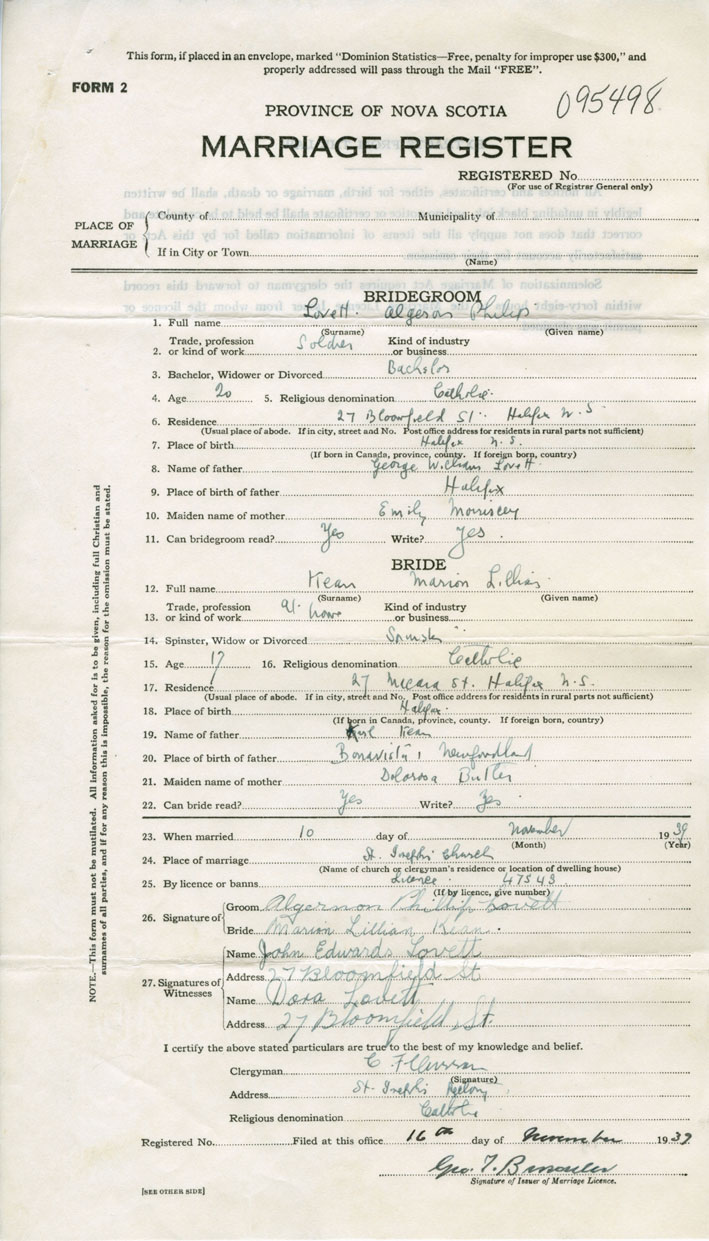 This form, if placed in an envelope, marked "Dominion Statistics—Free, penalty for improper use $300," and
properly addressed will pass through the Mail "FREE".
FORM 2
095498
PROVINCE OF NOVA SCOTIA
MARRIAGE REGISTER
REGISTERED No.
(For use of Registrar General only)
PLACE OF MARRIAGE
County of Municipality of
If in City or Town
(Name)
BRIDEGROOM
1. Full name Lovett Algernon Philip
(Surname) (Given name)
Trade, profession Soldier Kind of industry
2. or kind of work or business
3. Bachelor, Widower or Divorced Bachelor
4. Age 20 5. Religious denomination Catholic
6. Residence 27 Bloomfield St. Halifax N.S
(Usual place of abode. If in city, street and No. Post office address for residents in rural parts not sufficient)
7. Place of birth Halifax N.S.
(If born in Canada, province, county. If foreign born, country)
8. Name of father George William Lovett
9. Place of birth of father Halifax
10. Maiden name of mother Emily Morrissey
11. Can bridegroom read? Yes Write? Yes
BRIDE
12. Full name Kean Marion Lillian
(Surname) (Given name)
Trade, profession At home Kind of industry
13. or kind of work or business
14. Spinster, Widow or Divorced Spinster
15. Age 17 16. Religious denomination Catholic
17. Residence 27 St. Halifax N.S.
(Usual place of abode. If in city, street and No. Post office address for residents in rural parts not sufficient)
18. Place of birth Halifax
(If born in Canada, province, county. If foreign born, country)
19. Name of father Kean
20. Place of birth of father Bonavista, Newfoundland
21. Maiden name of mother Dolorosa Butler
22. Can bride read? Yes Write? Yes
23. When married 10 day of November 1939
(Month) (Year)
24. Place of marriage St. Joseph's Church
(Name of church or clergyman's residence or location of dwelling house)
25. By licence or banns Licence 47543
(If by licence, give number)
26. Signature of
Groom Algernon Phillip Lovett
Bride Marion Lillian Kean.
27. Signatures of Witnesses
Name John Edwards Lovett
Address 27 Bloomfield St
Name Dora Lovett
Address 27 Bloomfield St.
I certify the above stated particulars are true to the best of my knowledge and belief.
Clergyman C
(Signature)
Address St. Joseph's
Religious denomination Catholic
Registered No. Filed at this office 16th day of November 1939
Geo. T.
Signature of Issuer of Marriage Licence.
[SEE OTHER SIDE]
NOTE.—This form must not be mutilated. All information asked for is to be given, including full Christian and
surnames of all parties, and if for any reason this is impossible, the reason for the omission must be stated.